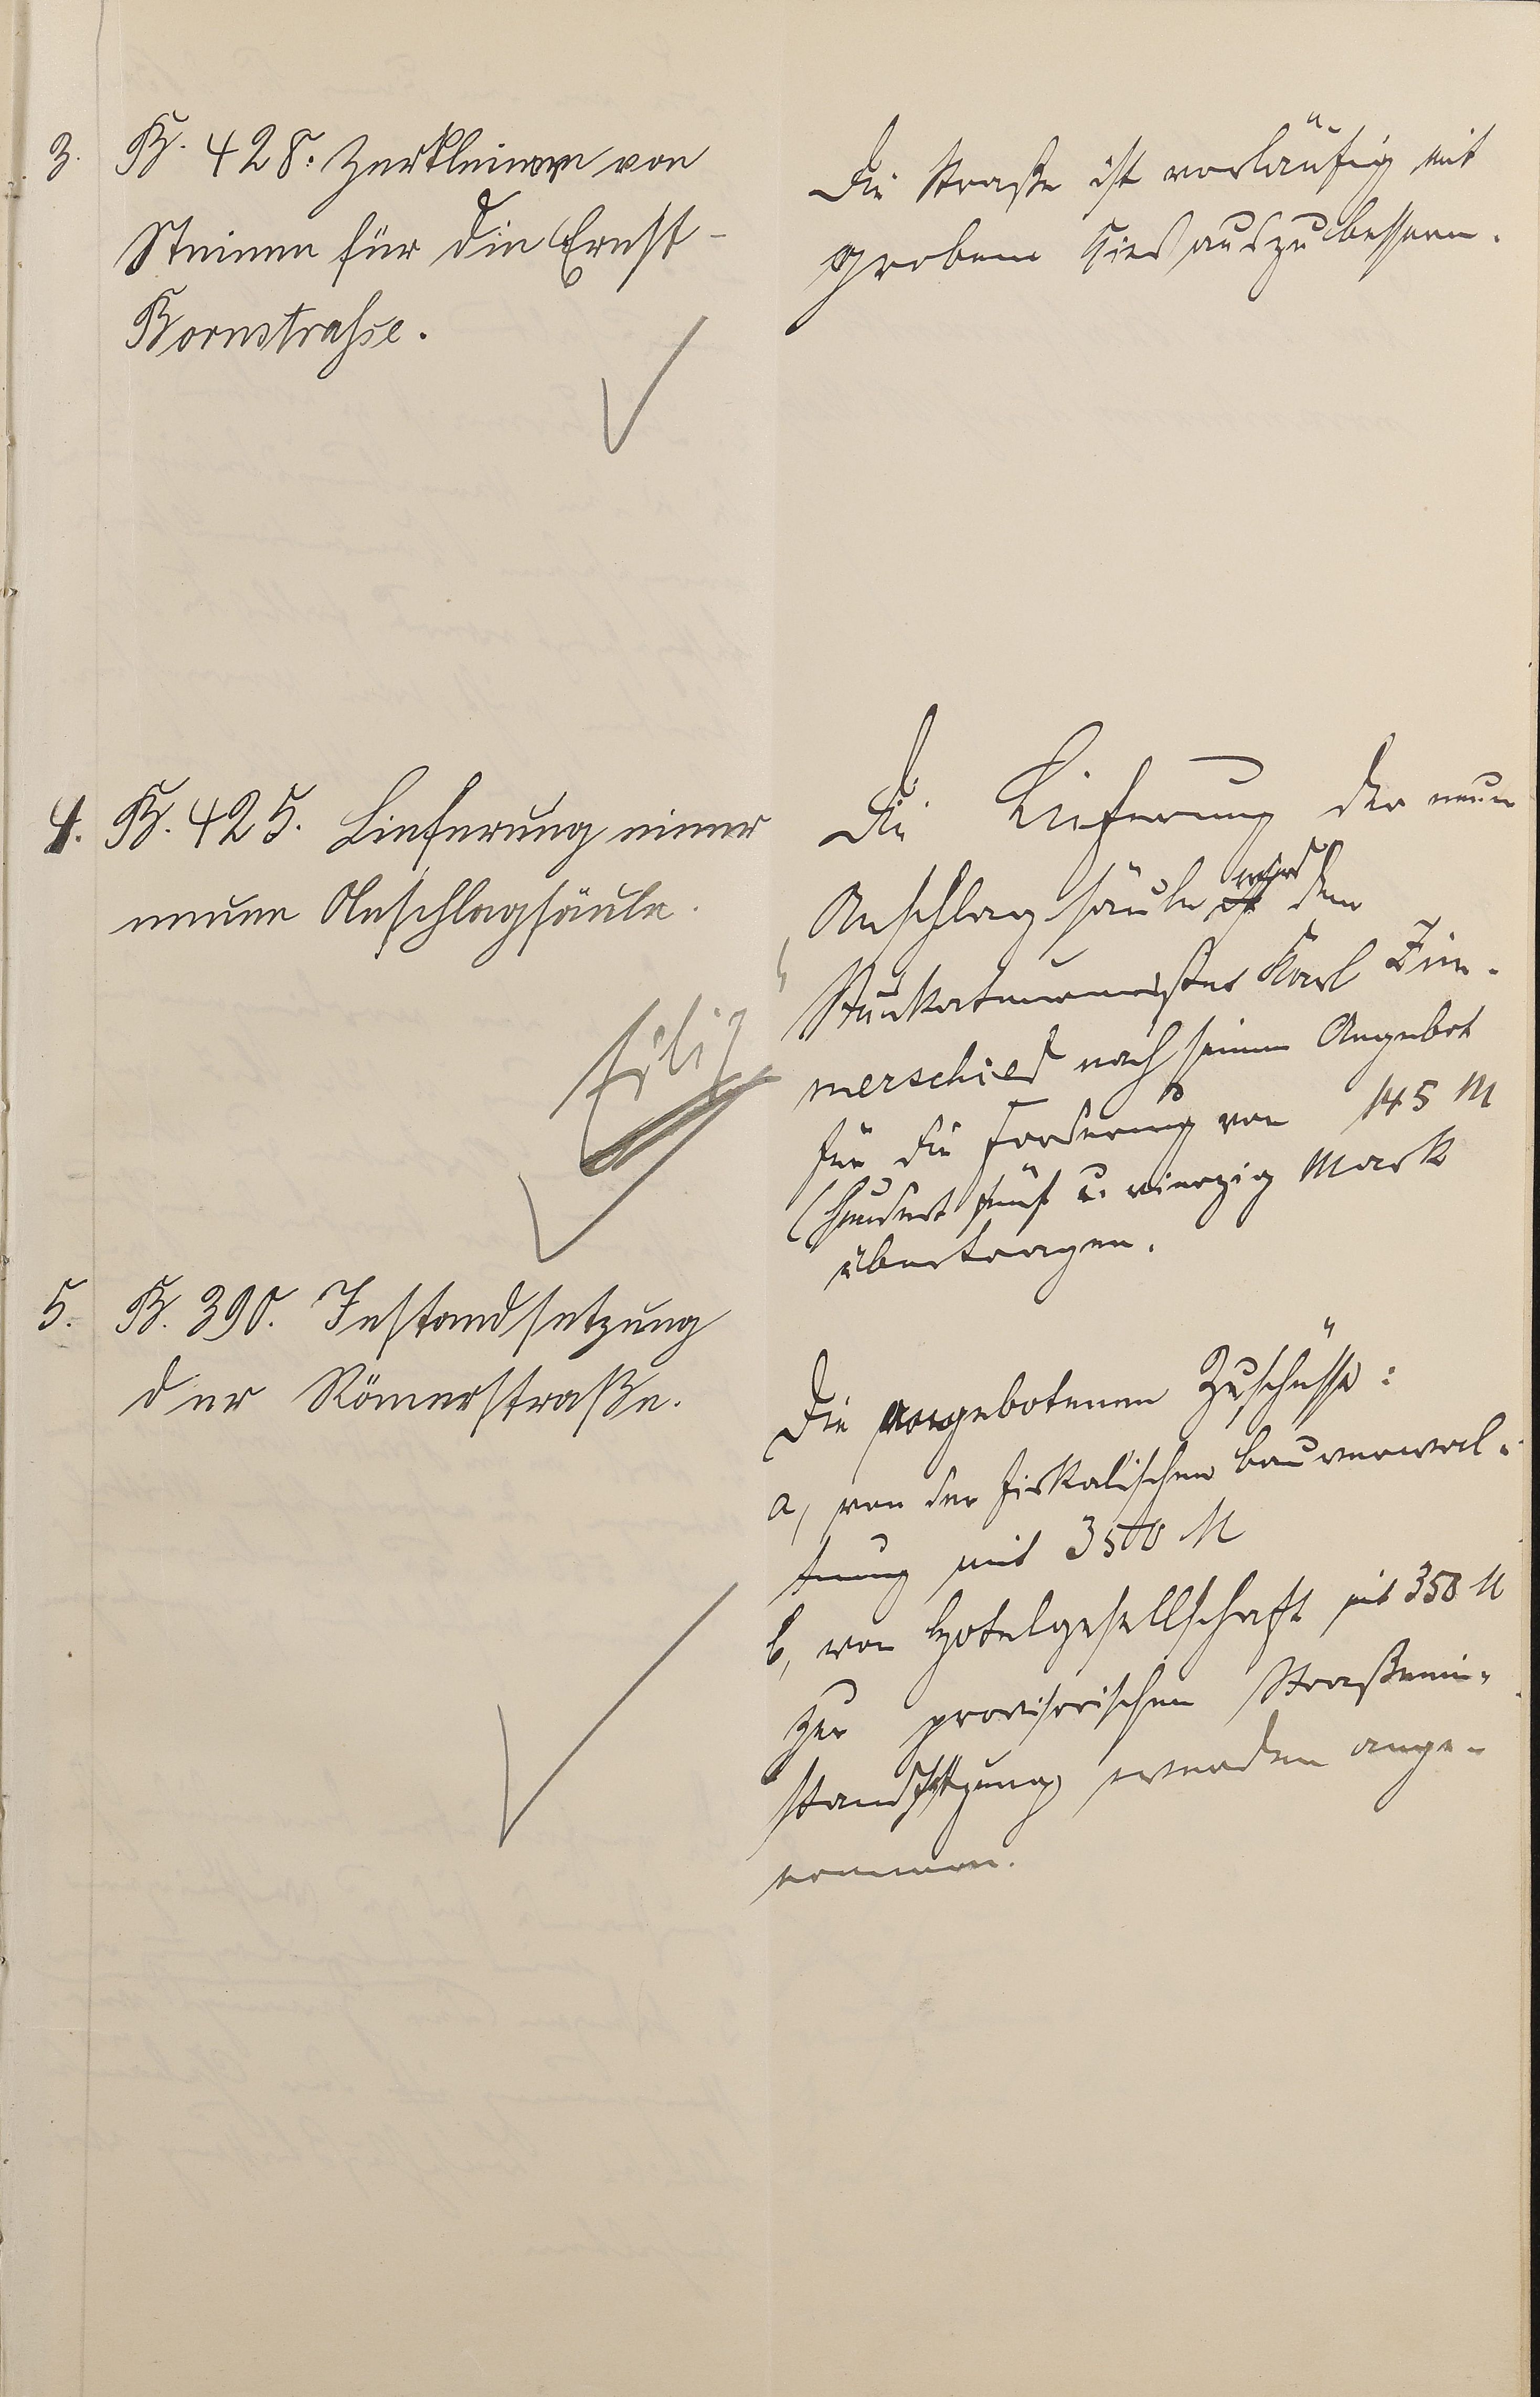 3. B. 428. Zerkleinern von
Steinen für die Ernst-
Bornstrahse.
Die Straße ist vorläufig mit
grobem Kies auszubessern.
4. B. 425. Lieferung einer
neuen Anschlagsäule.
Eilig
Die Lieferung der neuen
Anschlagsäule ist wird dem
Stuckateurmeister Karl Zim-
merschied nach seinem Angebot
für die Forderung von 145 M
(hundert fünf u. vierzig Mark
übertragen.
5. B. 390. Instandsetzung
der Römerstraße.
Die angebotenen Zuschüsse:
a, von der fiskalischen Bauverwal-
tung mit 3500 M
b, von Hotelgesellschaft mit 350 M
zur provisorischen Straßenin-
standsetzung werden ange-
nommen.